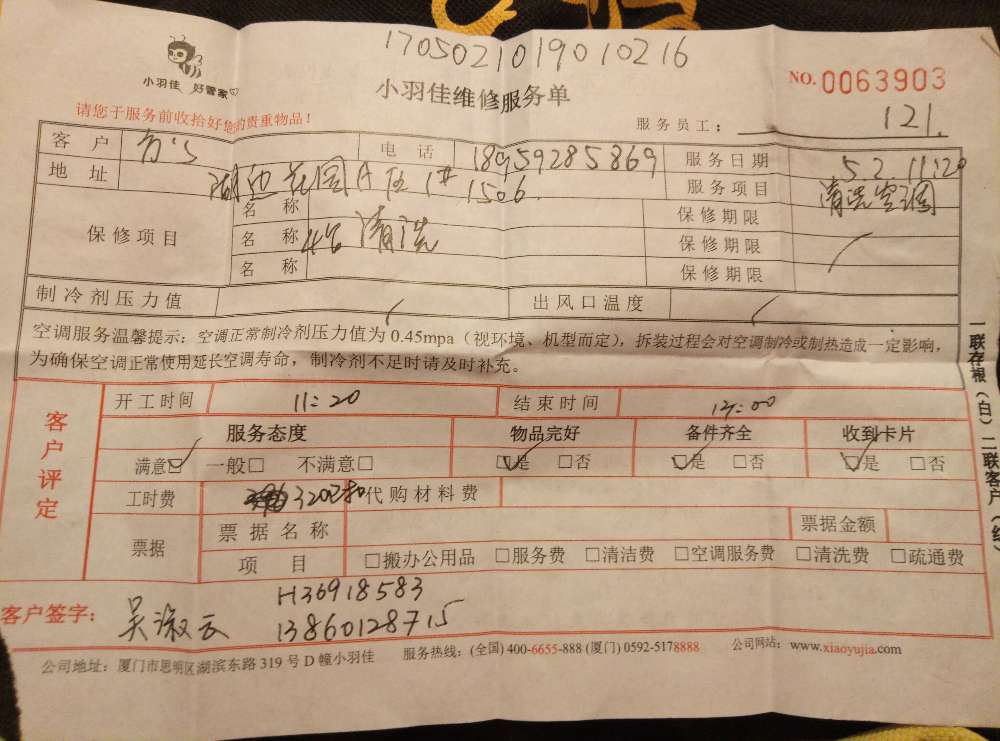 170502101901 0216
小羽佳 好管家
小羽佳维修服务单
NO.0063903
请您于服务前收拾好您的贵重物品！
服务员工： 121.
客户 方's 电话 18959285869 服务日期 5.2. 11:20
地址 湖边花园A区1# 1506. 服务项目 清洗空调
保修项目
名称 保修期限
名称 清洗 保修期限
名称 保修期限
制冷剂压力值 出风口温度
空调服务温馨提示：空调正常制冷剂压力值为0.45mpa（视环境、机型而定），拆装过程会对空调制冷或制热造成一定影响，
为确保空调正常使用延长空调寿命，制冷剂不足时请及时补充。
客户评定
开工时间 11:20 结束时间 12:00
服务态度 物品完好 备件齐全 收到卡片
满意☑ 一般□ 不满意□ ☑是 □否 ☑是 □否 ☑是 □否
工时费 320已扣 代购材料费
票据
票据名称 票据金额
项目 □搬办公用品 □服务费 □清洁费 □空调服务费 □清洗费 □疏通费
客户签字： 吴淑云
H36918583
13860128715
公司地址：厦门市思明区湖滨东路319号D幢小羽佳 服务热线：(全国) 400-6655-888 (厦门) 0592-5178888 公司网站：www.xiaoyujia.com
一联存根（白）二联客户（红）